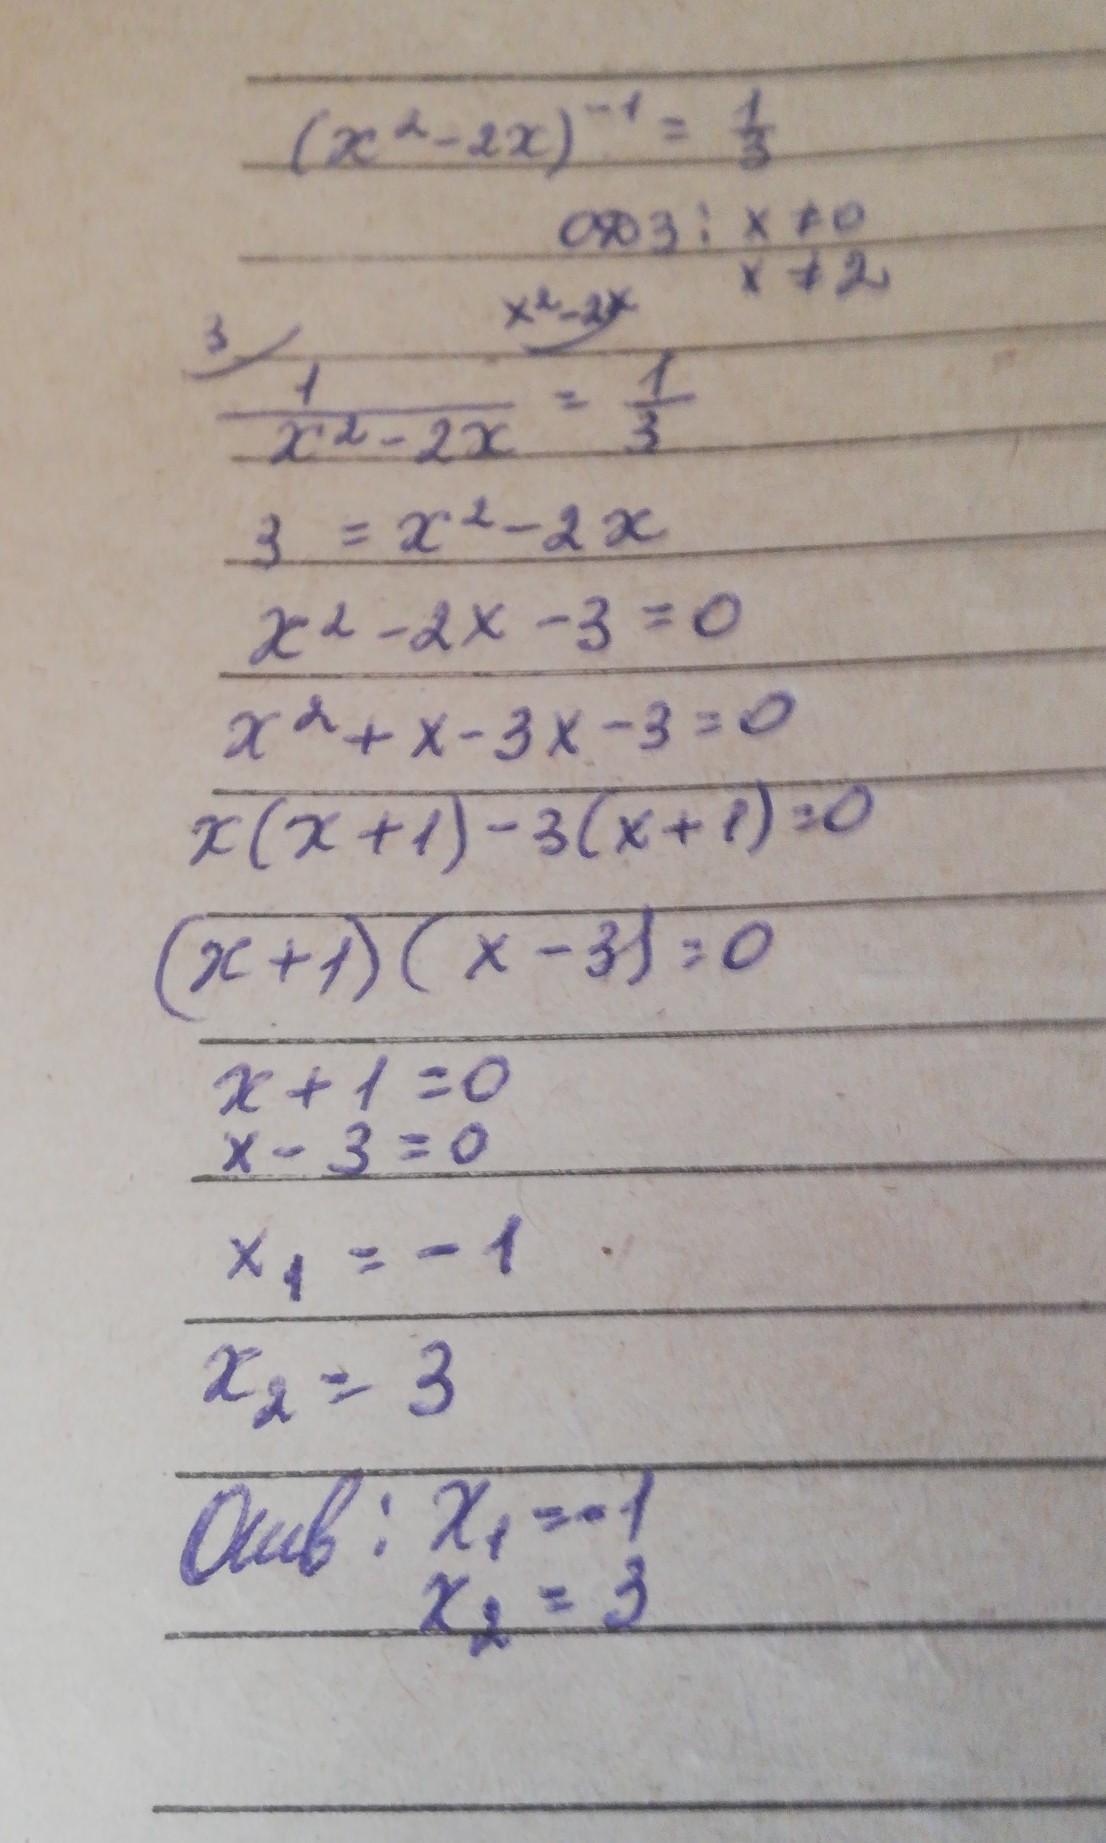 (x² - 2x)⁻¹ = 1/3
ОДЗ: x ≠ 0
x ≠ 2
3 x² - 2x
1/(x² - 2x) = 1/3
3 = x² - 2x
x² - 2x - 3 = 0
x² + x - 3x - 3 = 0
x(x + 1) - 3(x + 1) = 0
(x + 1)(x - 3) = 0
x + 1 = 0
x - 3 = 0
x₁ = -1
x₂ = 3
Отв: x₁ = -1
x₂ = 3